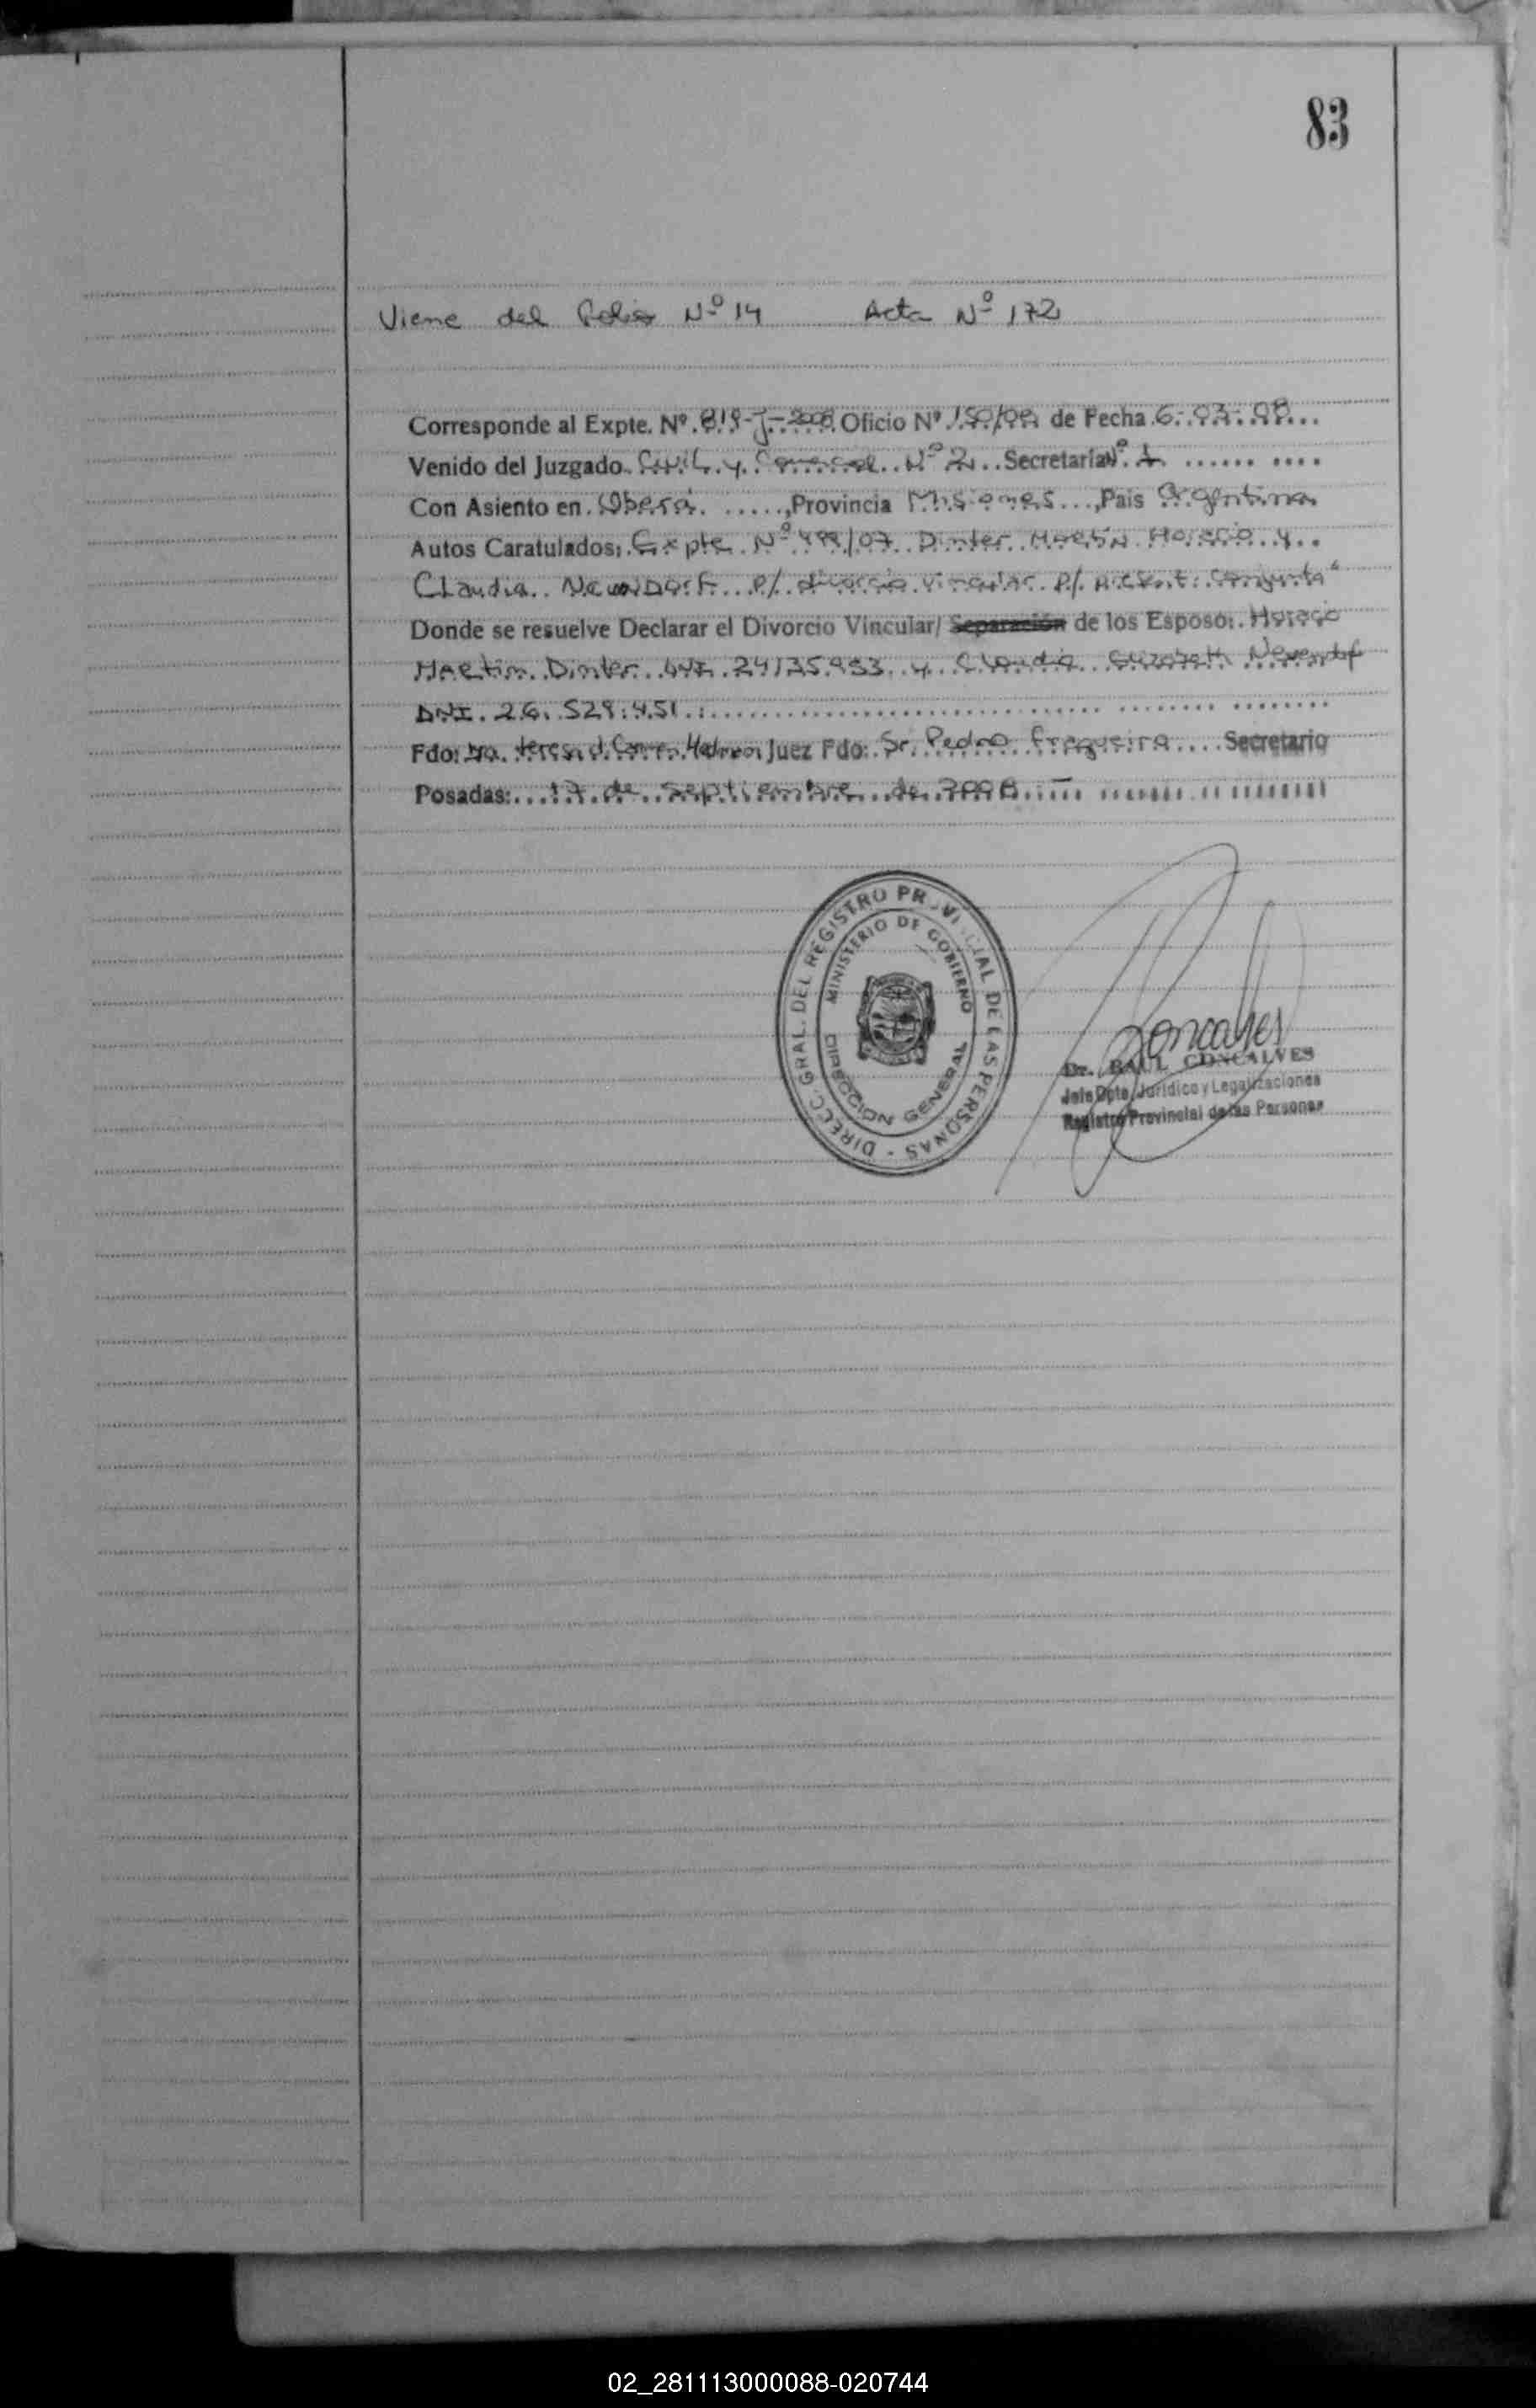 83
Viene del Folio Nº 14 Acta Nº 172
Corresponde al Expte. Nº 819-J-2008 Oficio Nº 150/08 de Fecha 6-03-08
Venido del Juzgado Civil y Comercial Nº 2 Secretaria Nº 1
Con Asiento en Oberá, Provincia Misiones, Pais Argentina
Autos Caratulados: Expte Nº 499/07 Dinter Martín Horacio y
Claudia Neuendorf p/ divorcio vincular p/ present. Conjunta"
Donde se resuelve Declarar el Divorcio Vincular/ Separación de los Esposo: Horacio
Martin Dinter DNI 24135.933 y Claudia Elizabeth Neuendorf
DNI. 26.528.451.
Fdo: Dra. Teresa d. Carmen Juez Fdo: Sr. Pedro Fragueira Secretario
Posadas: 17 de septiembre de 2008
DIREC. GRAL. DEL REGISTRO PROVINCIAL DE LAS PERSONAS
MINISTERIO DE GOBIERNO
DIRECCION GENERAL
Goncalves
Dr. RAUL GONCALVES
Jefe Dpto. Jurídico y Legalizaciones
Registro Provincial de las Personas
02_281113000088-020744